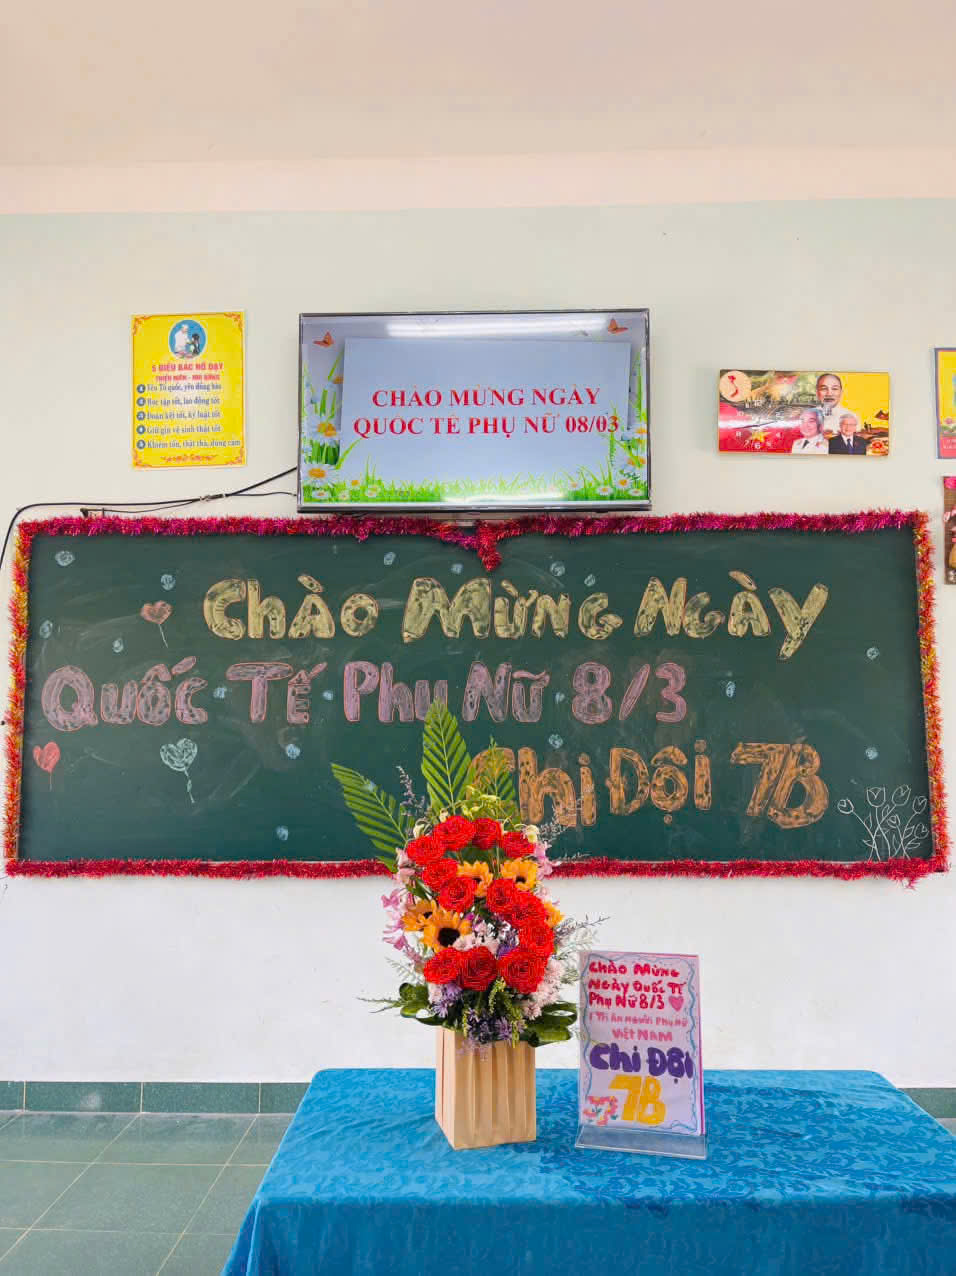 5 ĐIỀU BÁC HỒ DẠY
THIẾU NIÊN - NHI ĐỒNG
1 Yêu Tổ quốc, yêu đồng bào
2 Học tập tốt, lao động tốt
3 Đoàn kết tốt, kỷ luật tốt
4 Giữ gìn vệ sinh thật tốt
5 Khiêm tốn, thật thà, dũng cảm
CHÀO MỪNG NGÀY
QUỐC TẾ PHỤ NỮ 08/03
Chào Mừng Ngày
Quốc Tế Phụ Nữ 8/3
Chi Đội 7B
Chào Mừng
Ngày Quốc Tế
Phụ Nữ 8/3
Tri Ân Người Phụ Nữ
Việt Nam
Chi Đội
7B